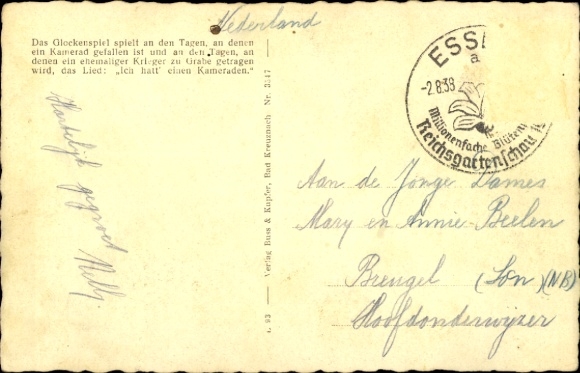 Nederland
Das Glockenspiel spielt an den Tagen, an denen
ein Kamerad gefallen ist und an den Tagen, an
denen ein ehemaliger Krieger zu Grabe getragen
wird, das Lied: „Ich hatt' einen Kameraden."
Hartelijk gegroet
Nelly.
4. 93 — Verlag Buss & Kupfer, Bad Kreuznach Nr. 3517
ESS
a
-2.8.38
Millionenfache Blüten
Reichsgartenschau
Aan de Jonge Dames
Mary en Annie Beelen
Breugel (Son) (NB)
Hoofdonderwijzer